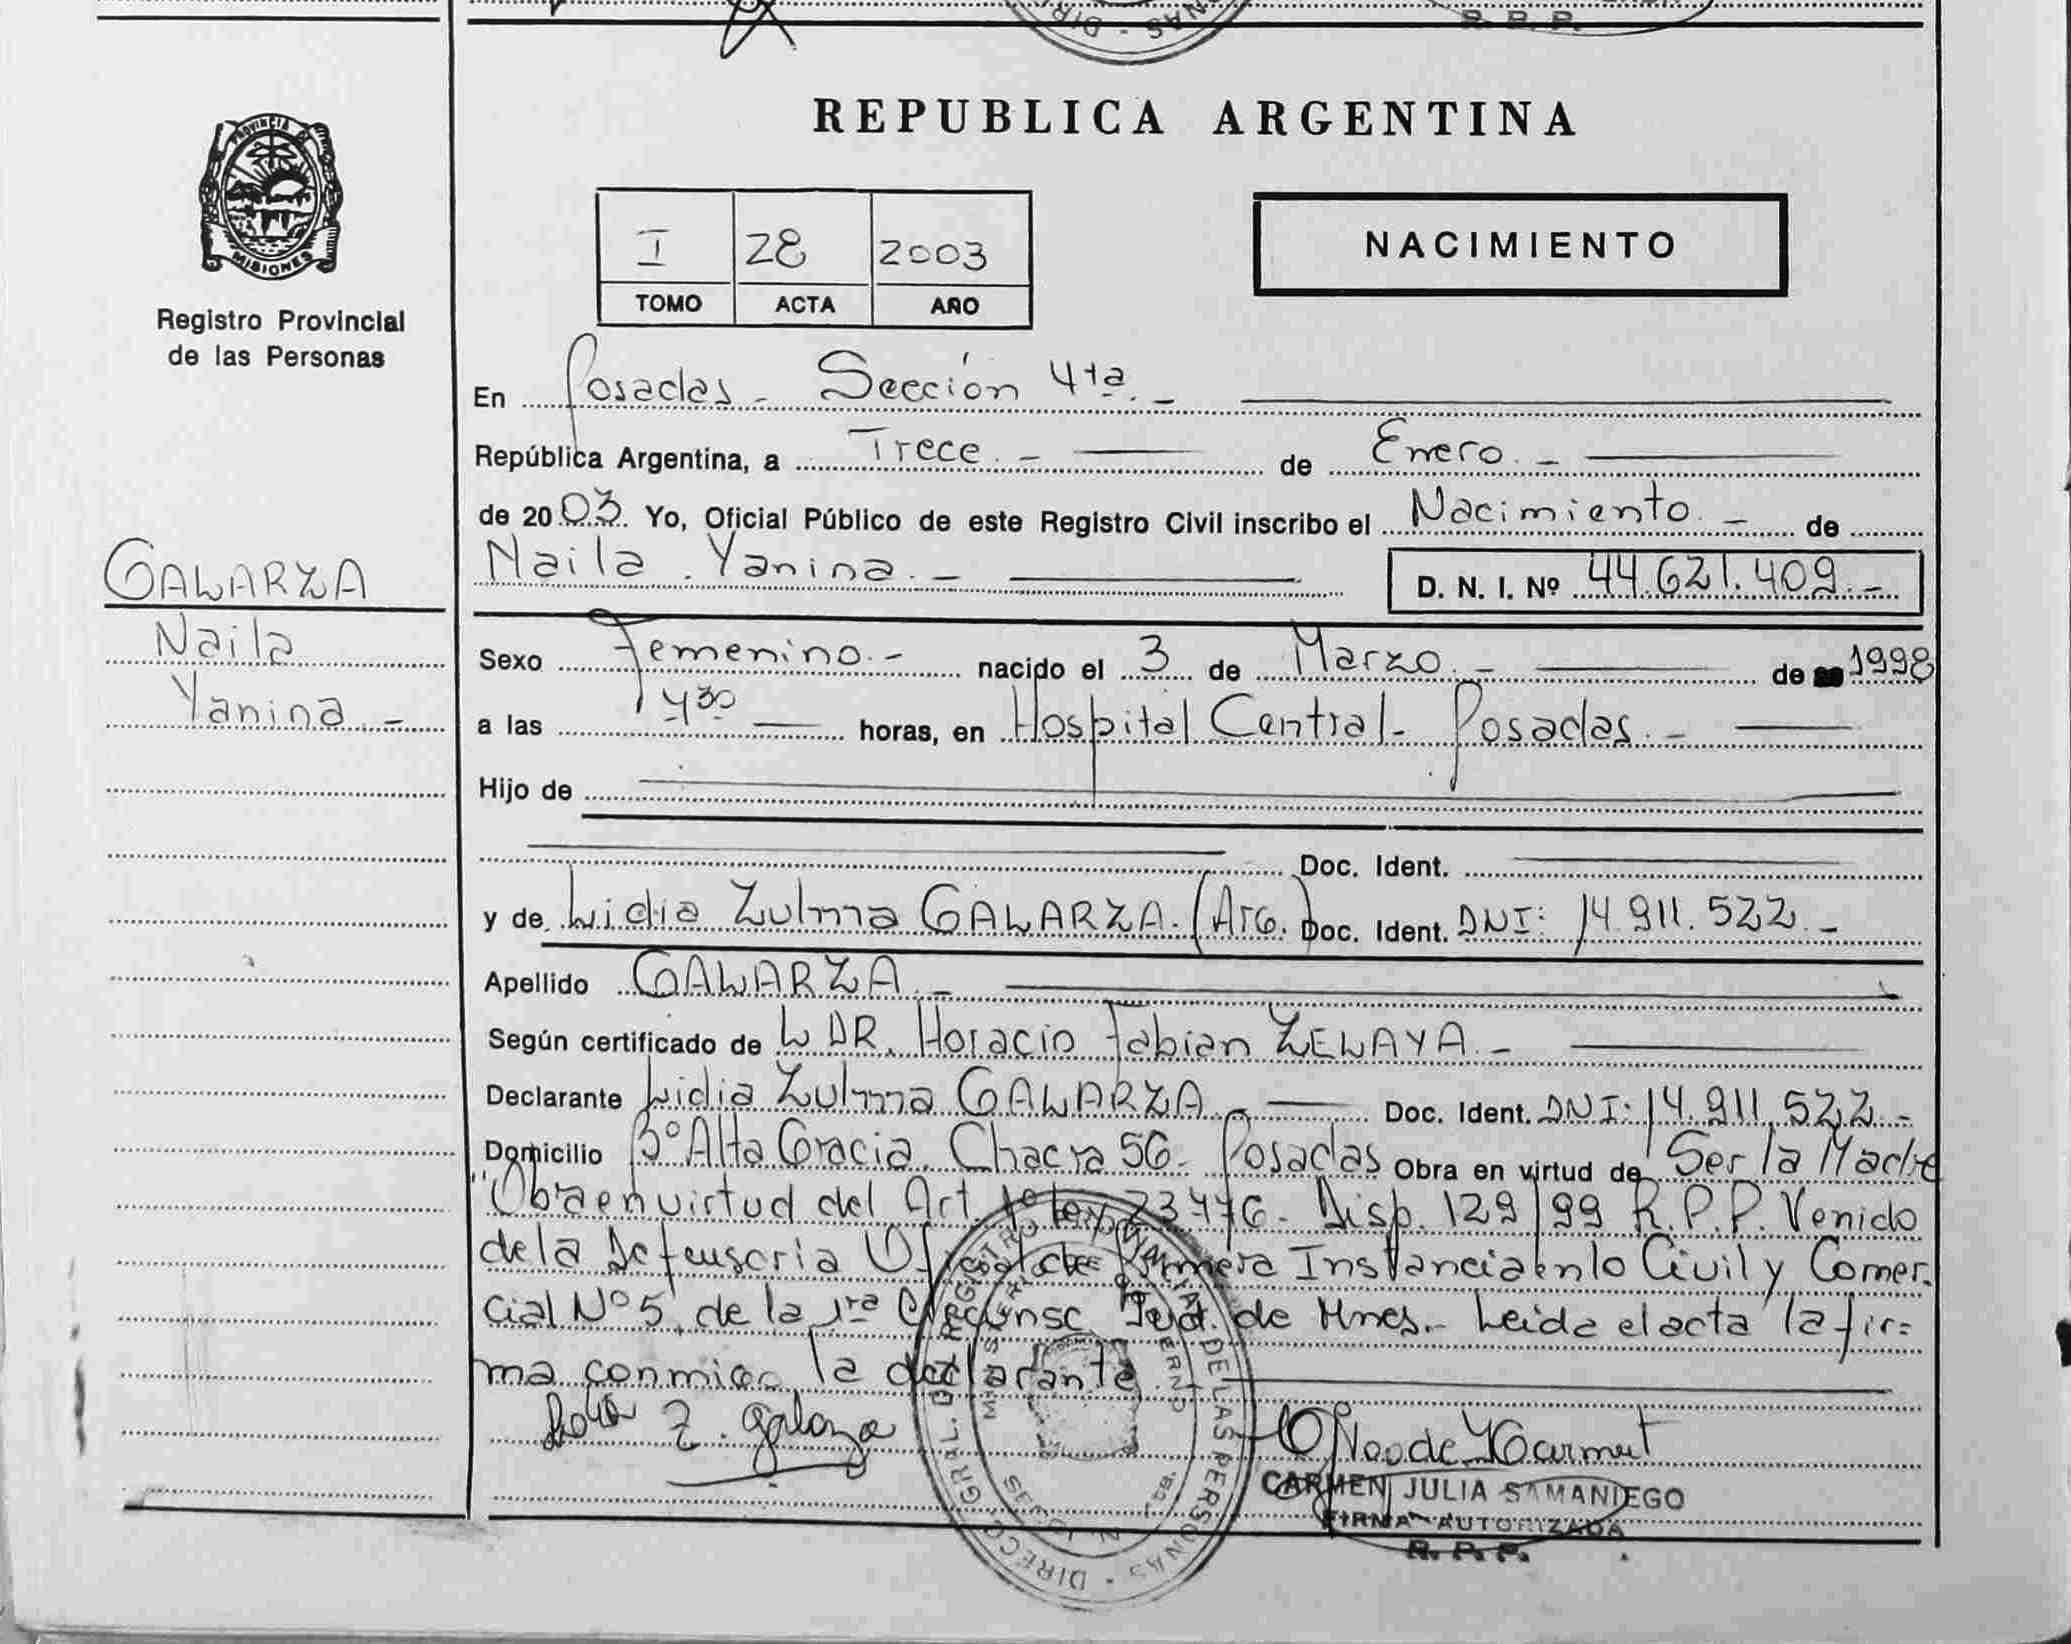 REPUBLICA ARGENTINA
PROVINCIA DE
MISIONES
Registro Provincial
de las Personas
I 28 2003
TOMO ACTA AÑO
NACIMIENTO
En Posadas - Sección 4ta. -
República Argentina, a Trece. - de Enero. -
de 2003. Yo, Oficial Público de este Registro Civil inscribo el Nacimiento. - de
Naila Yanina. - D. N. I. Nº 44.621.409. -
GALARZA
Naila
Yanina. -
Sexo Femenino. - nacido el 3 de Marzo. - de 1998
a las 430 horas, en Hospital Central - Posadas. -
Hijo de
Doc. Ident.
y de Lidia Zulma GALARZA. (Arg.) Doc. Ident. DNI: 14.911.522. -
Apellido GALARZA. -
Según certificado de L DR. Horacio Fabian ZELAYA. -
Declarante Lidia Zulma GALARZA. - Doc. Ident. DNI: 14.911.522. -
Domicilio Bº Alta Gracia. Chacra 56 - Posadas Obra en virtud de Ser la Madre
"Obra en virtud del Art. 1º Ley 23776 - Disp. 129/99 R.P.P. Venido
de la Defensoria Oficial de Primera Instancia en lo Civil y Comer-
cial Nº 5 de la 1ra Circunsc. Jud. de Mnes. - Leida el acta la fir=
ma conmigo la declarante
Z. Galarza
CARMEN JULIA SAMANIEGO
FIRMA AUTORIZADA
R. P. P.
DIRECC. GRAL. DEL REGISTRO PROVINCIAL DE LAS PERSONAS